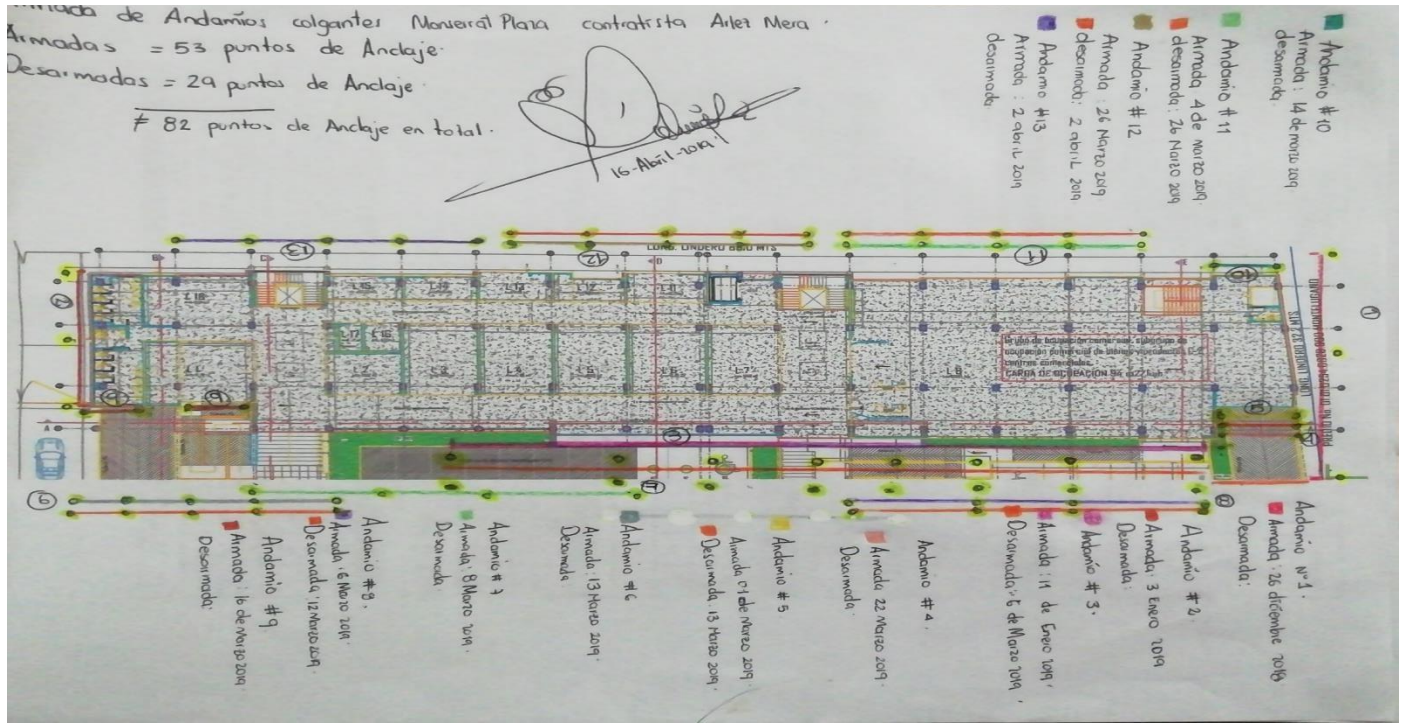 de Andamios colgantes Monserrat Plaza contratista Arlez Mera.
Armadas = 53 puntos de Anclaje.
Desarmadas = 29 puntos de Anclaje.
≠ 82 puntos de Anclaje en total.
16-Abril-2019
Andamio #10
Armada: 14 de marzo 2019.
desarmada:
Andamio #11
Armada 4 de Marzo 2019.
desarmada: 26 Marzo 2019
Andamio #12
Armada: 26 Marzo 2019.
desarmada: 2 abril 2019
Andamio #13
Armada: 2 abril 2019
desarmada:
13
12
11
10
LONG. LINDERO
L 18
L 15
L 14
L 13
L 12
L 11
L 8
Grupo de ocupación comercial, subgrupo de
centros comerciales.
Andamio N°1.
Armada: 26 diciembre 2018
Desarmada:
Andamio #2
Armada: 3 Enero 2019
Desarmada:
Andamio #3.
Armada: 11 de Enero 2019.
Desarmada: 6 de Marzo 2019.
Andamio #4.
Armada 22 Marzo 2019.
Desarmada.
Andamio #5.
Armada 01 de Marzo 2019.
Desarmada. 13 Marzo 2019.
Andamio #6
Armada: 13 Marzo 2019.
Desarmada:
Andamio #7
Armada: 8 Marzo 2019.
Desarmada:
Andamio #8.
Armada: 6 Marzo 2019.
Desarmada: 12 Marzo 2019.
Andamio #9.
Armada: 16 de Marzo 2019.
Desarmada: